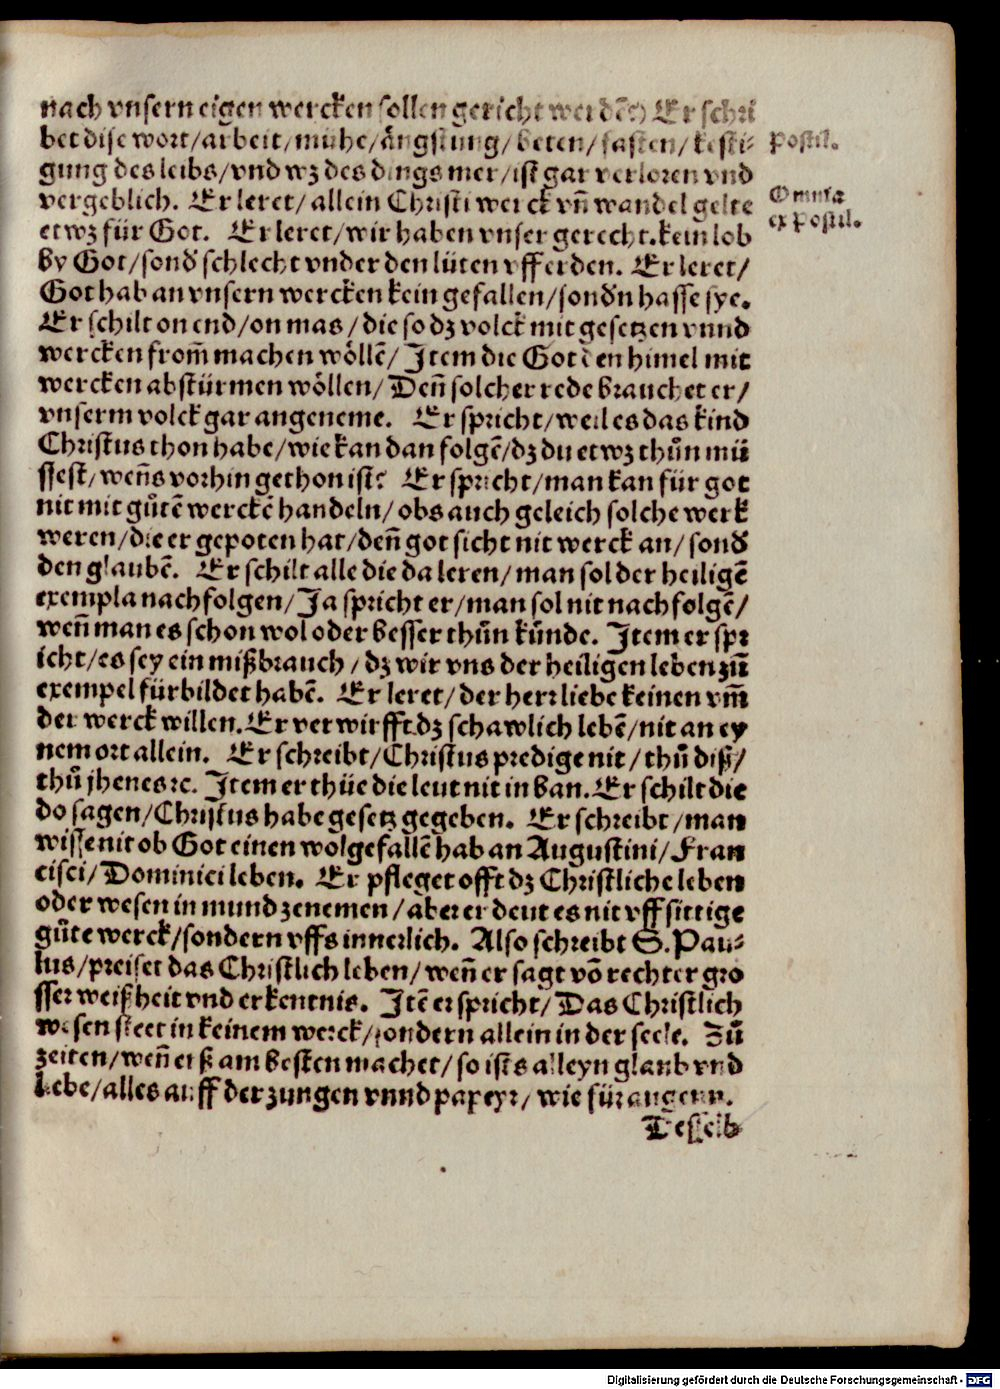 nach vnsern eigen wercken sollen gericht werdē?) Er schri
bet dise wort/arbeit/mühe/ängstung/beten/fasten/kesti-
gung des leibs/vnd wz des dings mer/ist gar verloren vnd
vergeblich. Er leret/allein Christi werck vn̄ wandel gelte
etwz für Got. Er leret/wir haben vnser gerecht.kein lob
by Got/sond̕ schlecht vnder den lüten vff erden. Er leret/
Got hab an vnsern wercken kein gefallen/sond̕n hasse sye.
Er schilt on end/on mas/die so dz volck mit gesetzen vnnd
wercken from̄ machen wöllē/Item die Got den himel mit
wercken abstürmen wöllen/Den̄ solcher rede brauchet er/
vnserm volck gar angeneme. Er spricht/weil es das kind
Christus thon habe/wie kan dan folgē/dz du etwz thůn mü
ssest/wen̄s vorhin gethon ist? Er spricht/man kan für got
nit mit gůtē werckē handeln/obs auch geleich solche werk
weren/die er gepoten hat/den̄ got sicht nit werck an/sond̕
den glaubē. Er schilt alle die da leren/man sol der heiligē
exempla nachfolgen/Ja spricht er/man sol nit nachfolgē/
wen̄ man es schon wol oder besser thůn kůnde. Item er spr
icht/es sey ein mißbrauch/dz wir vns der heiligen leben zů
exempel fürbildet habē. Er leret/der herr liebe keinen vm̄
der werck willen.Er verwirfft dz schawlich lebē/nit an ey
nem ort allein. Er schreibt/Christus predige nit/thů diß/
thů jhenes ꝛc. Item er thüe die leut nit in ban.Er schilt die
do sagen/Christus habe gesetz gegeben. Er schreibt/man
wisse nit ob Got einen wolgefallē hab an Augustini/Fran
cisci/Dominici leben. Er pfleget offt dz Christliche leben
oder wesen in mund zenemen/aber er deut es nit vff sittige
gůte werck/sondern vffs innerlich. Also schreibt S.Pau-
lus/preiset das Christlich leben/wen̄ er sagt vō rechter gro
sser weißheit vnd erkentnis. Itē er spricht/Das Christlich
wesen steet in keinem werck/sondern allein in der seele. Zů
zeiten/wen̄ er ß am besten machet/so ists alleyn glaub vnd
liebe/alles auff der zungen vnnd papeyr/wie für augenn.
Desselb
Postil.
Omnia
ex Postil.
Digitalisierung gefördert durch die Deutsche Forschungsgemeinschaft - DFG